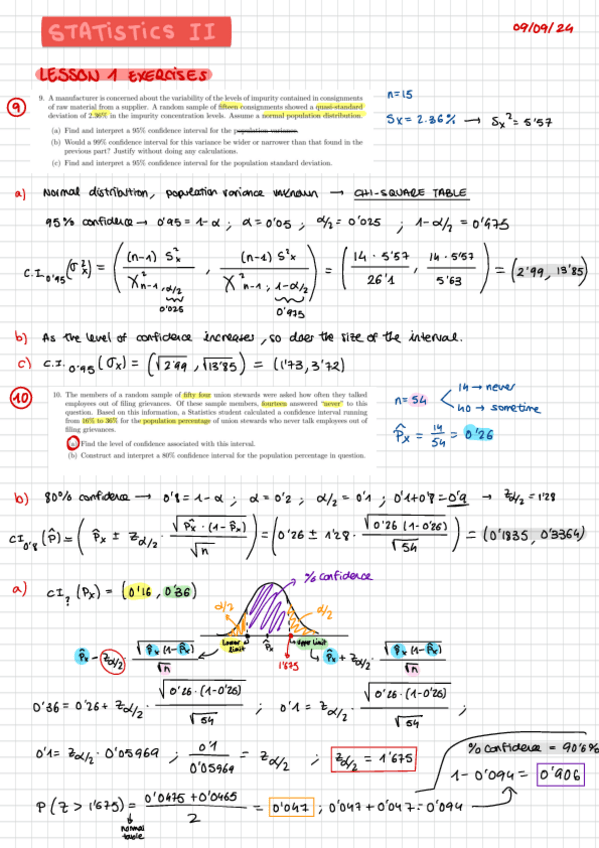 STATISTICS II
09/09/24
LESSON 1 EXERCISES
9
9. A manufacturer is concerned about the variability of the levels of impurity contained in consignments
of raw material from a supplier. A random sample of fifteen consignments showed a quasi-standard
deviation of 2.36% in the impurity concentration levels. Assume a normal population distribution.
(a) Find and interpret a 95% confidence interval for the population variance.
(b) Would a 99% confidence interval for this variance be wider or narrower than that found in the
previous part? Justify without doing any calculations.
(c) Find and interpret a 95% confidence interval for the population standard deviation.
n=15
Sx = 2.36% → Sx² = 5'57
a) Normal distribution, population variance unknown → CHI-SQUARE TABLE
95% confidence → 0'95 = 1-α ; α = 0'05 ; α/2 = 0'025 ; 1-α/2 = 0'975
C.I.0'95 (σ²x) = ( (n-1) S²x / X²n-1, α/2 , (n-1) S²x / X²n-1; 1-α/2 ) = ( 14 · 5'57 / 26'1 , 14 · 5'57 / 5'63 ) = (2'99, 13'85)
0'025 0'975
b) As the level of confidence increases, so does the size of the interval.
c) C.I.0'95 (σx) = (√2'99, √13'85) = (1'73, 3'72)
10
10. The members of a random sample of fifty four union stewards were asked how often they talked
employees out of filing grievances. Of these sample members, fourteen answered "never" to this
question. Based on this information, a Statistics student calculated a confidence interval running
from 16% to 36% for the population percentage of union stewards who never talk employees out of
filing grievances.
(a) Find the level of confidence associated with this interval.
(b) Construct and interpret a 80% confidence interval for the population percentage in question.
14 → never
n= 54
40 → sometime
p̂x = 14/54 = 0'26
b) 80% confidence → 0'8 = 1-α ; α = 0'2 ; α/2 = 0'1 ; 0'1+0'8 = 0'9 → Zα/2 = 1'28
CI0'8 (p̂) = ( p̂x ± Zα/2 · √p̂x · (1-p̂x) / √n ) = ( 0'26 ± 1'28 · √0'26 (1-0'26) / √54 ) = (0'1835, 0'3364)
a) CI? (Px) = (0'16, 0'36)
% confidence
α/2 α/2
Lower limit p̂x Upper limit
1'675
p̂x - Zα/2 · √p̂x (1-p̂x) / √n p̂x + Zα/2 · √p̂x (1-p̂x) / √n
0'36 = 0'26 + Zα/2 · √0'26 · (1-0'26) / √54 ; 0'1 = Zα/2 · √0'26 · (1-0'26) / √54 ;
0'1 = Zα/2 · 0'05969 ; 0'1 / 0'05969 = Zα/2 ; Zα/2 = 1'675
% confidence = 90'6%
1 - 0'094 = 0'906
P (Z > 1'675) = 0'0475 + 0'0465 / 2 = 0'047 ; 0'047 + 0'047 = 0'094
normal table